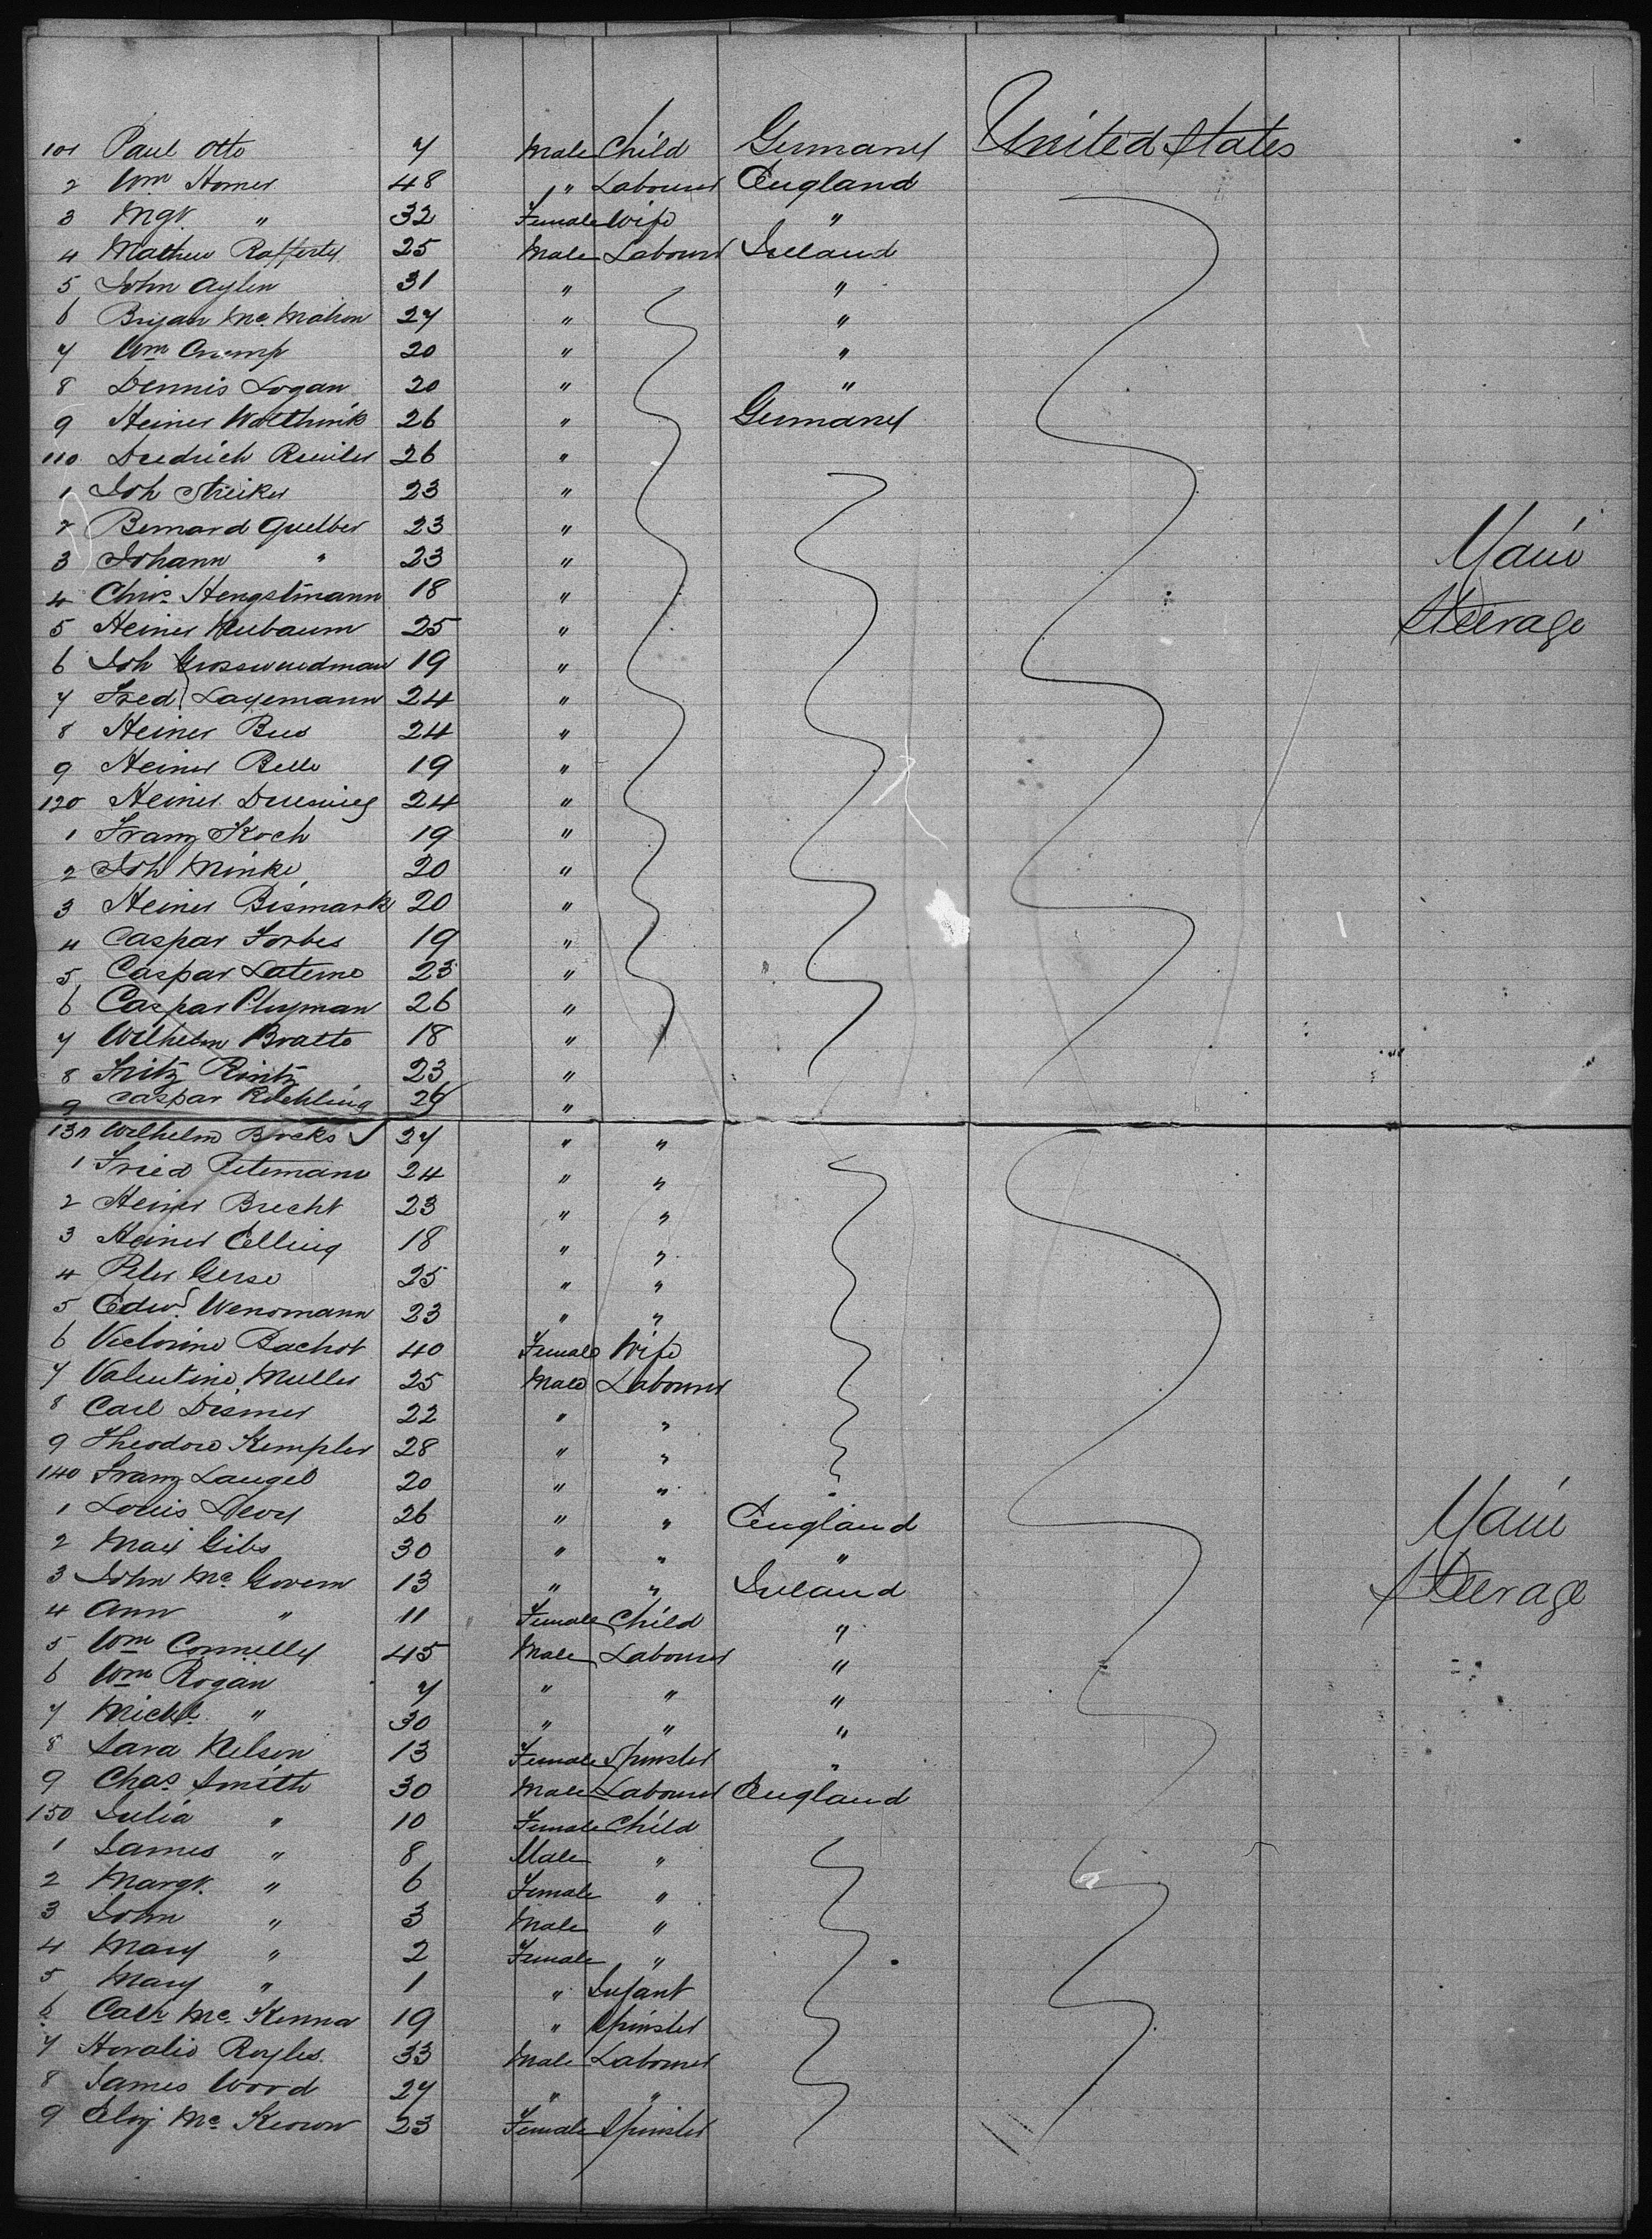 101 Paul Otto 7 Male Child Germany United States
2 Wm Homer 48 " Labourer England
3 Mgt. " 32 Female Wife "
4 Mathew Rafferty 25 Male Labourer Ireland
5 John Aylen 31 " "
6 Bryan Mc Mahon 27 " "
7 Wm Crump 20 " "
8 Dennis Logan 20 " "
9 Heiner 26 " Germany
110 Diedrich 26 "
1 Joh Strieker 23 "
2 Bernard Quelber 23 "
3 Johann " 23 "
4 Chris Hengstmann 18 "
5 Heiner Neubaum 25 "
6 Joh 19 "
7 Fred Lagemann 24 "
8 Heiner Bus 24 "
9 Heiner Belle 19 "
120 Heiner 24 "
1 Franz Koch 19 "
2 Joh Minke 20 "
3 Heiner Bismark 20 "
4 Caspar Forbes 19 "
5 Caspar Laterne 23 "
6 Caspar Plugman 26 "
7 Wilhelm Bratto 18 "
8 Fritz Rintz 23 "
9 Caspar Rechling "
Main
Steerage
130 Wilhelm Brocks 27 " "
1 Fried Petemann 24 " "
2 Heiner Brecht 23 " "
3 Heiner Elling 18 " "
4 Peter Gerse 25 " "
5 Edwd Wensmann 23 " "
6 Victorine Bachot 40 Female Wife
7 Valentine Muller 25 Male Labourer
8 Carl Dismer 22 " "
9 Theodore Kempler 28 " "
140 Franz Laugel 20 " "
1 Louis Levy 26 " " England
2 Max Gibs 30 " " "
3 John Mc Govern 13 " " Ireland
4 Ann " 11 Female Child "
5 Wm Connelly 45 Male Labourer "
6 Wm Rogan 7 " " "
7 Michl. " 30 " " "
8 Sara Nelson 13 Female Spinster "
9 Chas Smith 30 Male Labourer England
150 Julia " 10 Female Child
1 James " 8 Male "
2 Margt. " 6 Female "
3 John " 3 Male "
4 Mary " 2 Female "
5 Mary " 1 " Infant
6 Cath Mc Kenna 19 " Spinster
7 Horatio Royles 33 Male Labourer
8 James Wood 27 " "
9 Eliz Mc Keown 23 Female Spinster
Main
Steerage